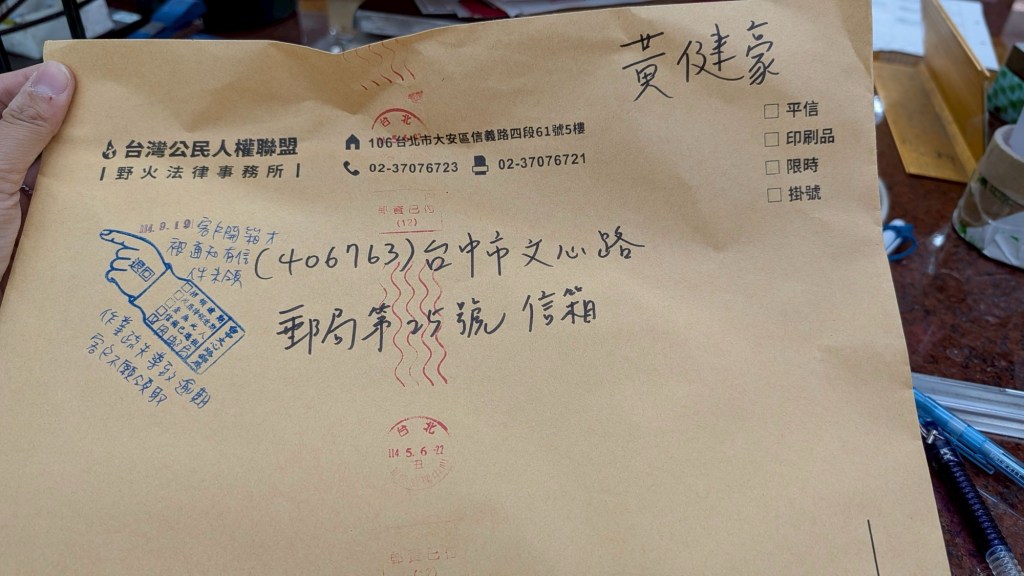 黃健豪
台灣公民人權聯盟
野火法律事務所
106台北市大安區信義路四段61號5樓
02-37076723
02-37076721
□ 平信
□ 印刷品
□ 限時
□ 掛號
台北
郵資已付
(12)
客戶開箱才
被通知有信
件未領
退回
(406763)台中市文心路
郵局第25號信箱
作業疏失導致逾期
客戶不願領取
台北
114.5.6.-22